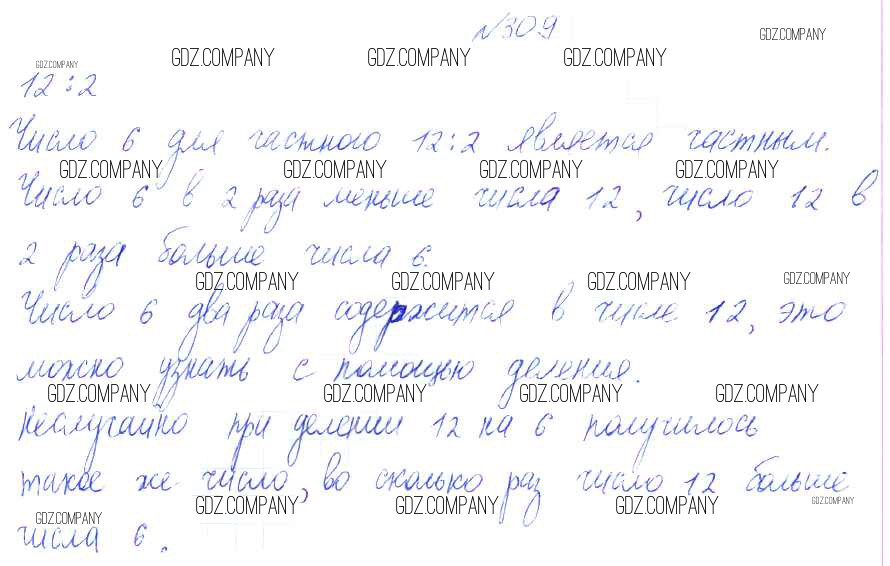 №309
GDZ.COMPANY
GDZ.COMPANY GDZ.COMPANY GDZ.COMPANY GDZ.COMPANY
12:2
Число 6 для частного 12:2 является частным.
GDZ.COMPANY GDZ.COMPANY GDZ.COMPANY GDZ.COMPANY
Число 6 в 2 раза меньше числа 12, число 12 в
2 раза больше числа 6.
GDZ.COMPANY GDZ.COMPANY GDZ.COMPANY GDZ.COMPANY
Число 6 два раза содержится в числе 12, это
можно узнать с помощью деления.
GDZ.COMPANY GDZ.COMPANY GDZ.COMPANY GDZ.COMPANY
Неслучайно при делении 12 на 6 получилось
такое же число, во сколько раз число 12 больше
GDZ.COMPANY GDZ.COMPANY GDZ.COMPANY GDZ.COMPANY
GDZ.COMPANY
числа 6.